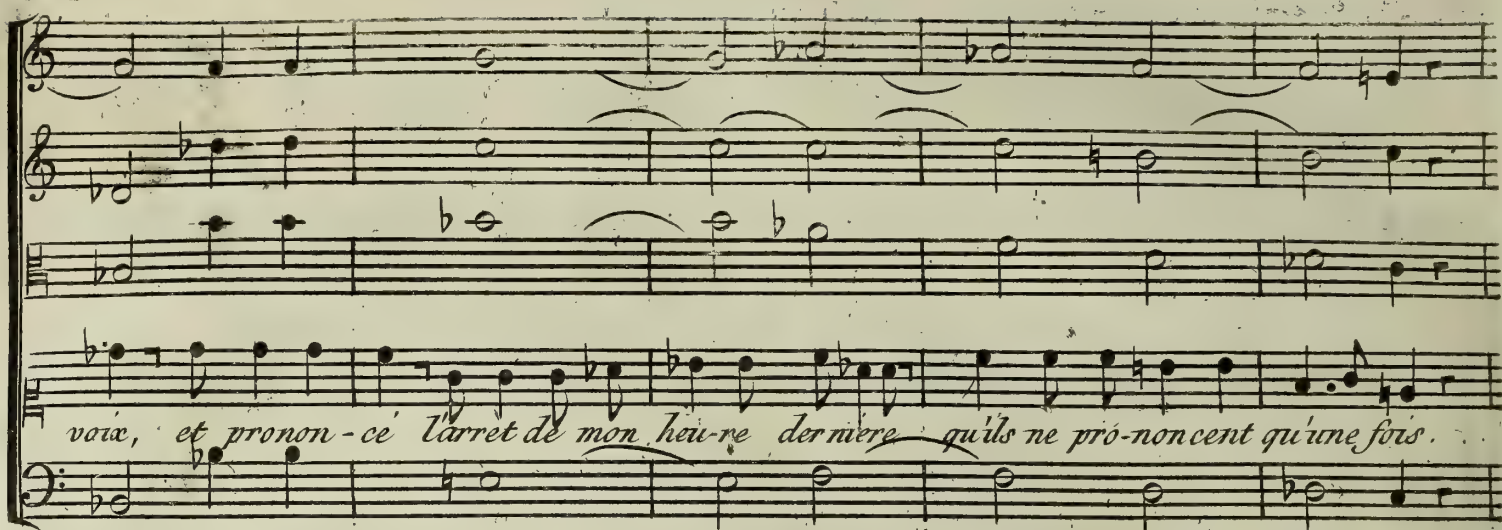 voix, et pronon-cé l'arrèt de mon heu-re dernière qu'ils ne pro-noncent qu'une fois.